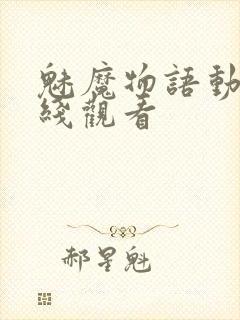 魅魔物語動
綫觀看
郝星魁